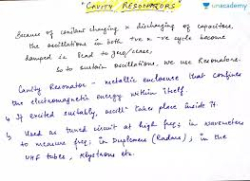 "CAVITY RESONATORS"
unacademy
Because of constant charging & discharging of capacitors,
the oscillations in both +ve & -ve cycle become
damped in
So to sustain oscillations, we use Resonators.
Cavity Resonator - metallic enclosure that confines
the electromagnetic energy within itself.
If excited suitably, oscillⁿ takes place inside it.
Used as tuned circuit at high freq. in wavemeters
to measure freq, in Duplexers (Radars), in the
UHF tubes, Klystrons etc.